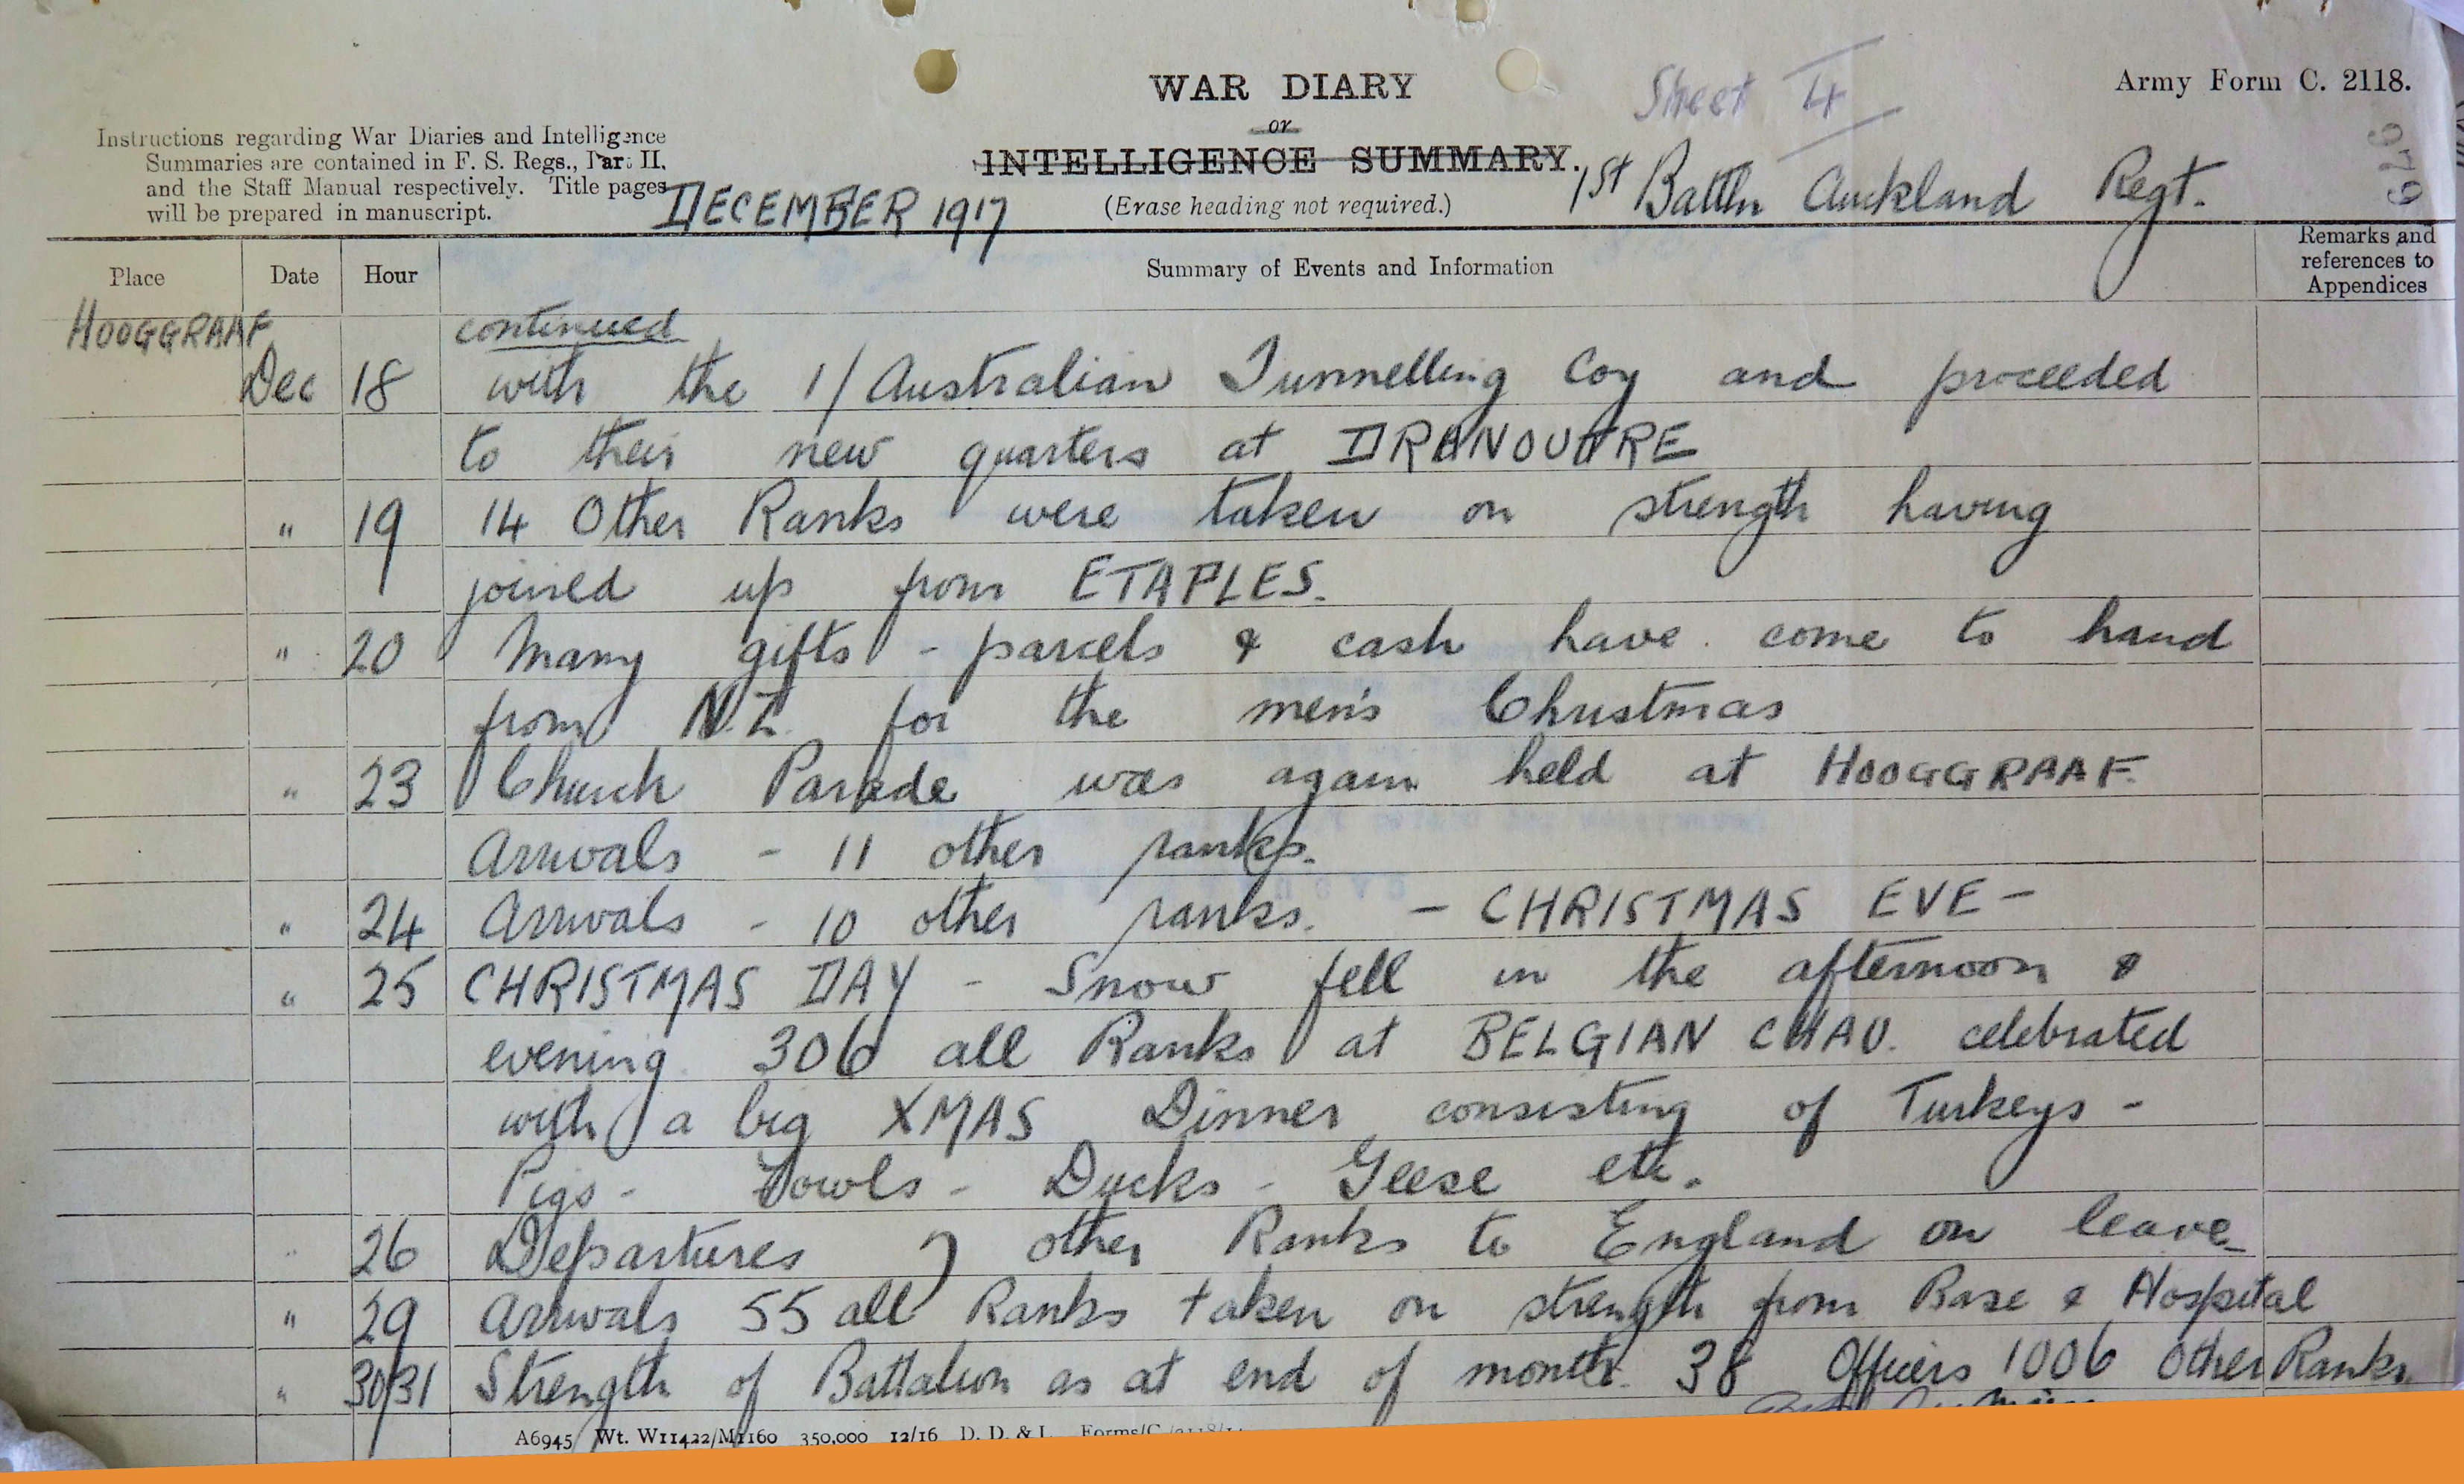 WAR DIARY
or
INTELLIGENCE SUMMARY.
(Erase heading not required.)
Sheet 4
Army Form C. 2118.
Instructions regarding War Diaries and Intelligence
Summaries are contained in F. S. Regs., Part II,
and the Staff Manual respectively. Title pages
will be prepared in manuscript.
DECEMBER 1917
1st Battln Auckland Regt.
Place Date Hour Summary of Events and Information Remarks and
references to
Appendices
HOOGGRAAF continued
Dec 18 with the 1/Australian Tunnelling Coy and proceeded
to their new quarters at DRANOUTRE
" 19 14 Other Ranks were taken on strength having
joined up from ETAPLES.
" 20 Many gifts - parcels & cash have come to hand
from N.Z. for the men's Christmas
" 23 Church Parade was again held at HOOGGRAAF.
Arrivals - 11 other ranks.
" 24 Arrivals - 10 other ranks. - CHRISTMAS EVE -
" 25 CHRISTMAS DAY - Snow fell in the afternoon &
evening. 306 all Ranks at BELGIAN CHAU. celebrated
with a big XMAS Dinner consisting of Turkeys -
Pigs - Fowls - Ducks - Geese etc.
" 26 Departures 7 other Ranks to England on leave
" 29 Arrivals 55 all Ranks taken on strength from Base & Hospital
" 30/31 Strength of Battalion as at end of month. 38 Officers 1006 Other Ranks.
A6945 Wt. W11422/M1160 350,000 12/16 D. D. & L. Forms/C/2118/14